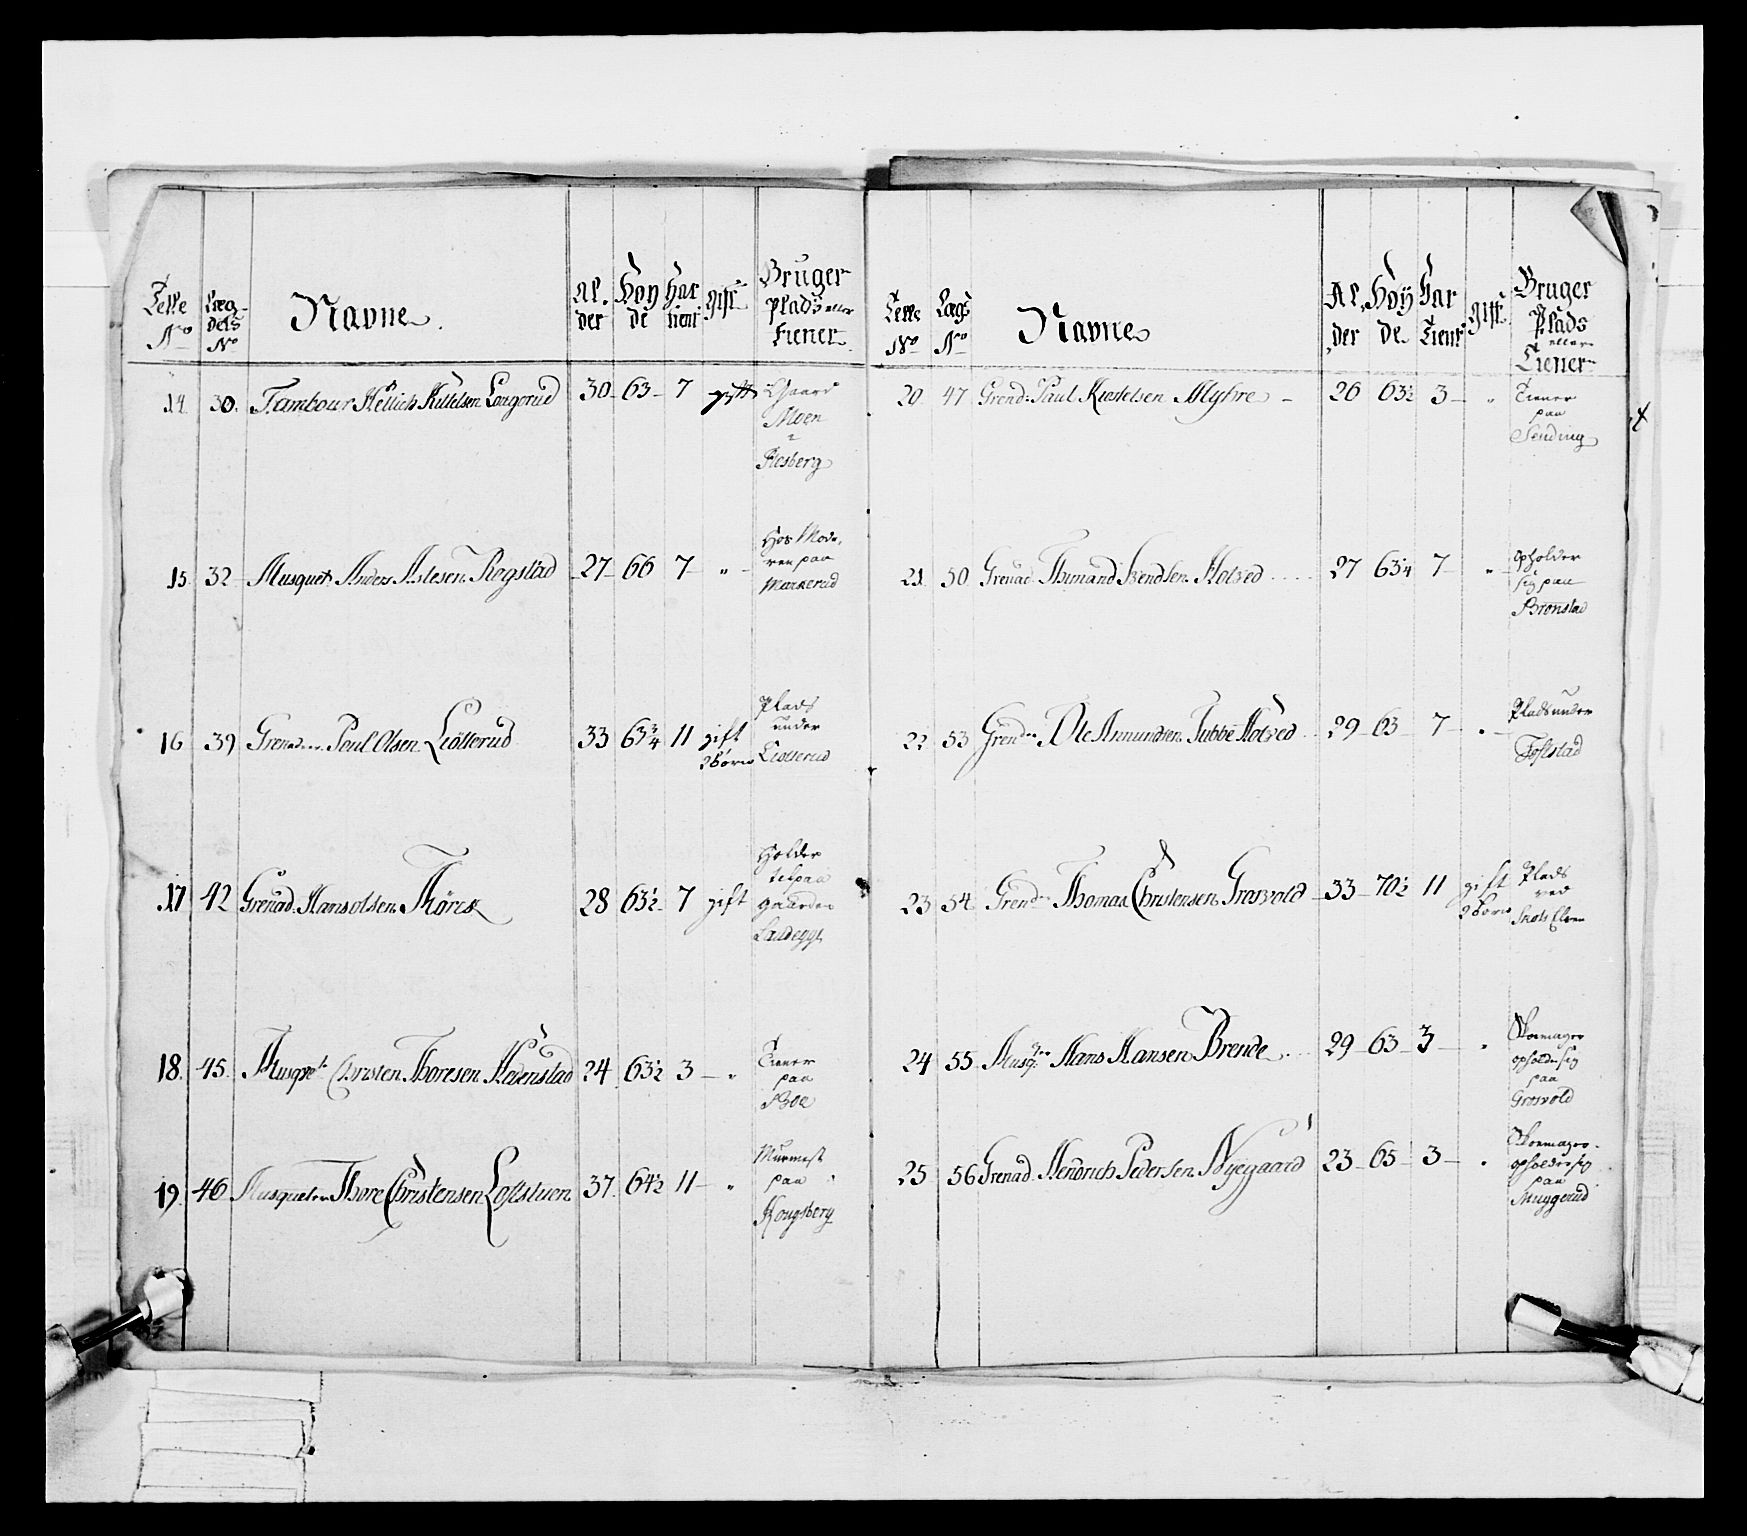 Telle No Lægdets No Navne Alder Høyde Har tient gift Bruger Plads eller tiener
14 30. Tambour Hellich Kittelsen Langerud 30 63 7 gift Gaard
Moen
i
Flesberg
15 32 Musquet Anders Aslesen Rogstad 27 66 7 " Hos Mode-
ren paa
Markerud
16 39 Grenader Poul Olsen Liøtterud 33 63¾ 11 gift
2 børn Plads
under
Liøtterud
17 42 Grenad. Hans Olsen 28 63½ 7 gift Holder
til paa
gaarden
18 45. Musqvet Christen Thoresen Hedenstad 24 63½ 3 " Tiener
paa
Boe
19. 46 Musqueteer Thore Christensen Loftstuen 37. 64½ 11 " Murmest
paa
Kongsberg
Telle No Lægs No Navne Alder Høyde Har Tient gift Bruger Plads eller Tiener
20 47 Grend: Paul Myhre 26 63½ 3 " Tiener
paa
Sending
21 50 Grenad Thimand Svendsen Hotved 27 63¼ 7 " opholder
sig paa
Bronstad
22 53 Grend Ole Amundsen Tubbe Hotved 29 63 7 " Plads under
Toflstad
23 54 Grend Thomas Christensen Grosvold 33 70½ 11 gift
2 børn Plads
ved
Elven
24 55 Musq Hans Hansen Brende 29 63 3 " Skomager
opholder sig
paa
Grosvold
25 56 Grenad Hendrich Pedersen Nyegaard 23 65 3 " Skomager
opholder sig
paa
Muggerud